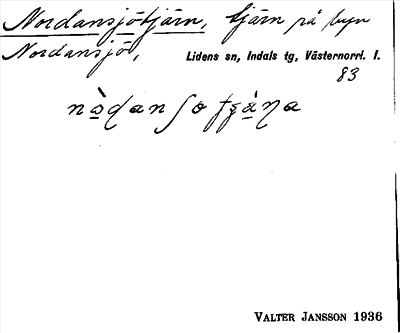 Nordansjötjärn, tjärn på byn
Nordansjö, Lidens sn, Indals tg, Västernorrl. l.
83
VALTER JANSSON 1936